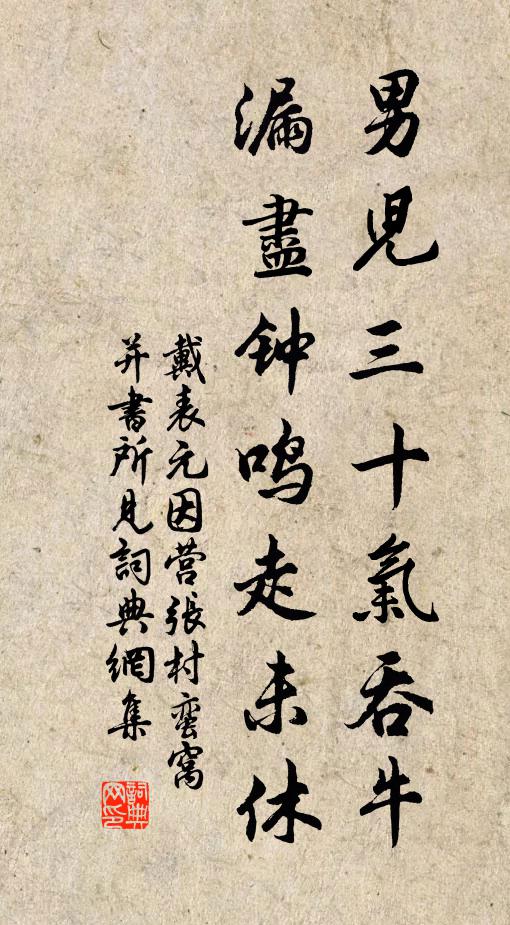 男兒三十氣吞牛
漏盡钟鸣走未休
戴表元因营張村蛮窩
并書所見詞典網集
詞典网印